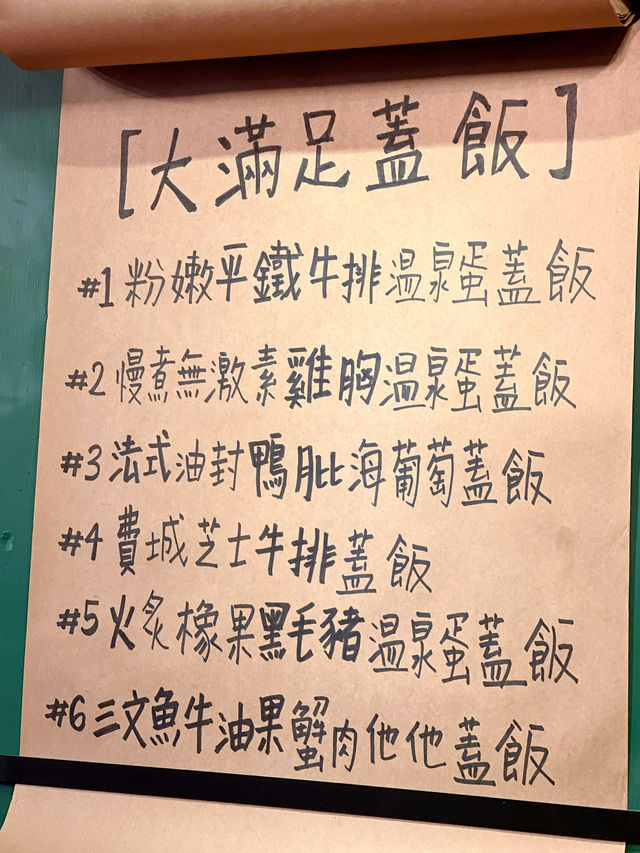 [大滿足蓋飯]
#1 粉嫩平鐵牛排溫泉蛋蓋飯
#2 慢煮無激素雞胸溫泉蛋蓋飯
#3 法式油封鴨肶海葡萄蓋飯
#4 費城芝士牛排蓋飯
#5 火炙橡果黑毛豬溫泉蛋蓋飯
#6 三文魚牛油果蟹肉他他蓋飯